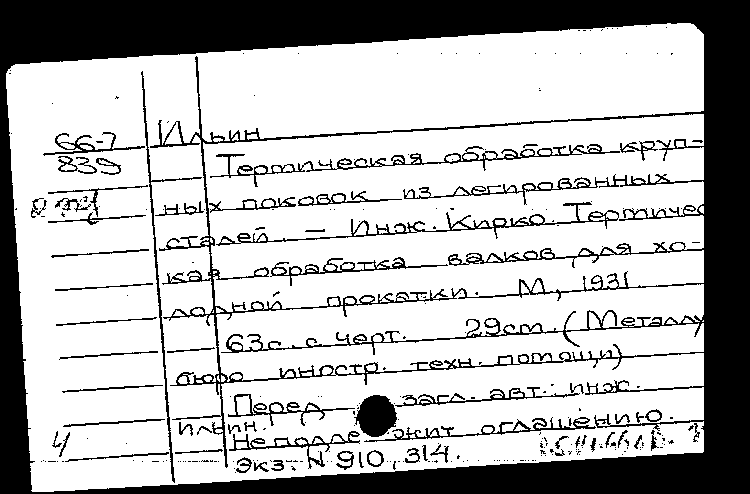 66-7 Ильин
839 Термическая обработка круп-
ных поковок из легированных
сталей. – Инж. Кирко. Термичес
кая обработка валков для хо-
лодной прокатки. М, 1931.
63с. с черт. 29cm. (Металлу
бюро иностр. техн. помощи)
Перед загл. авт.: инж.
Ильин.
Не подлежит оглашению.
4 Экз. N 910, 314.